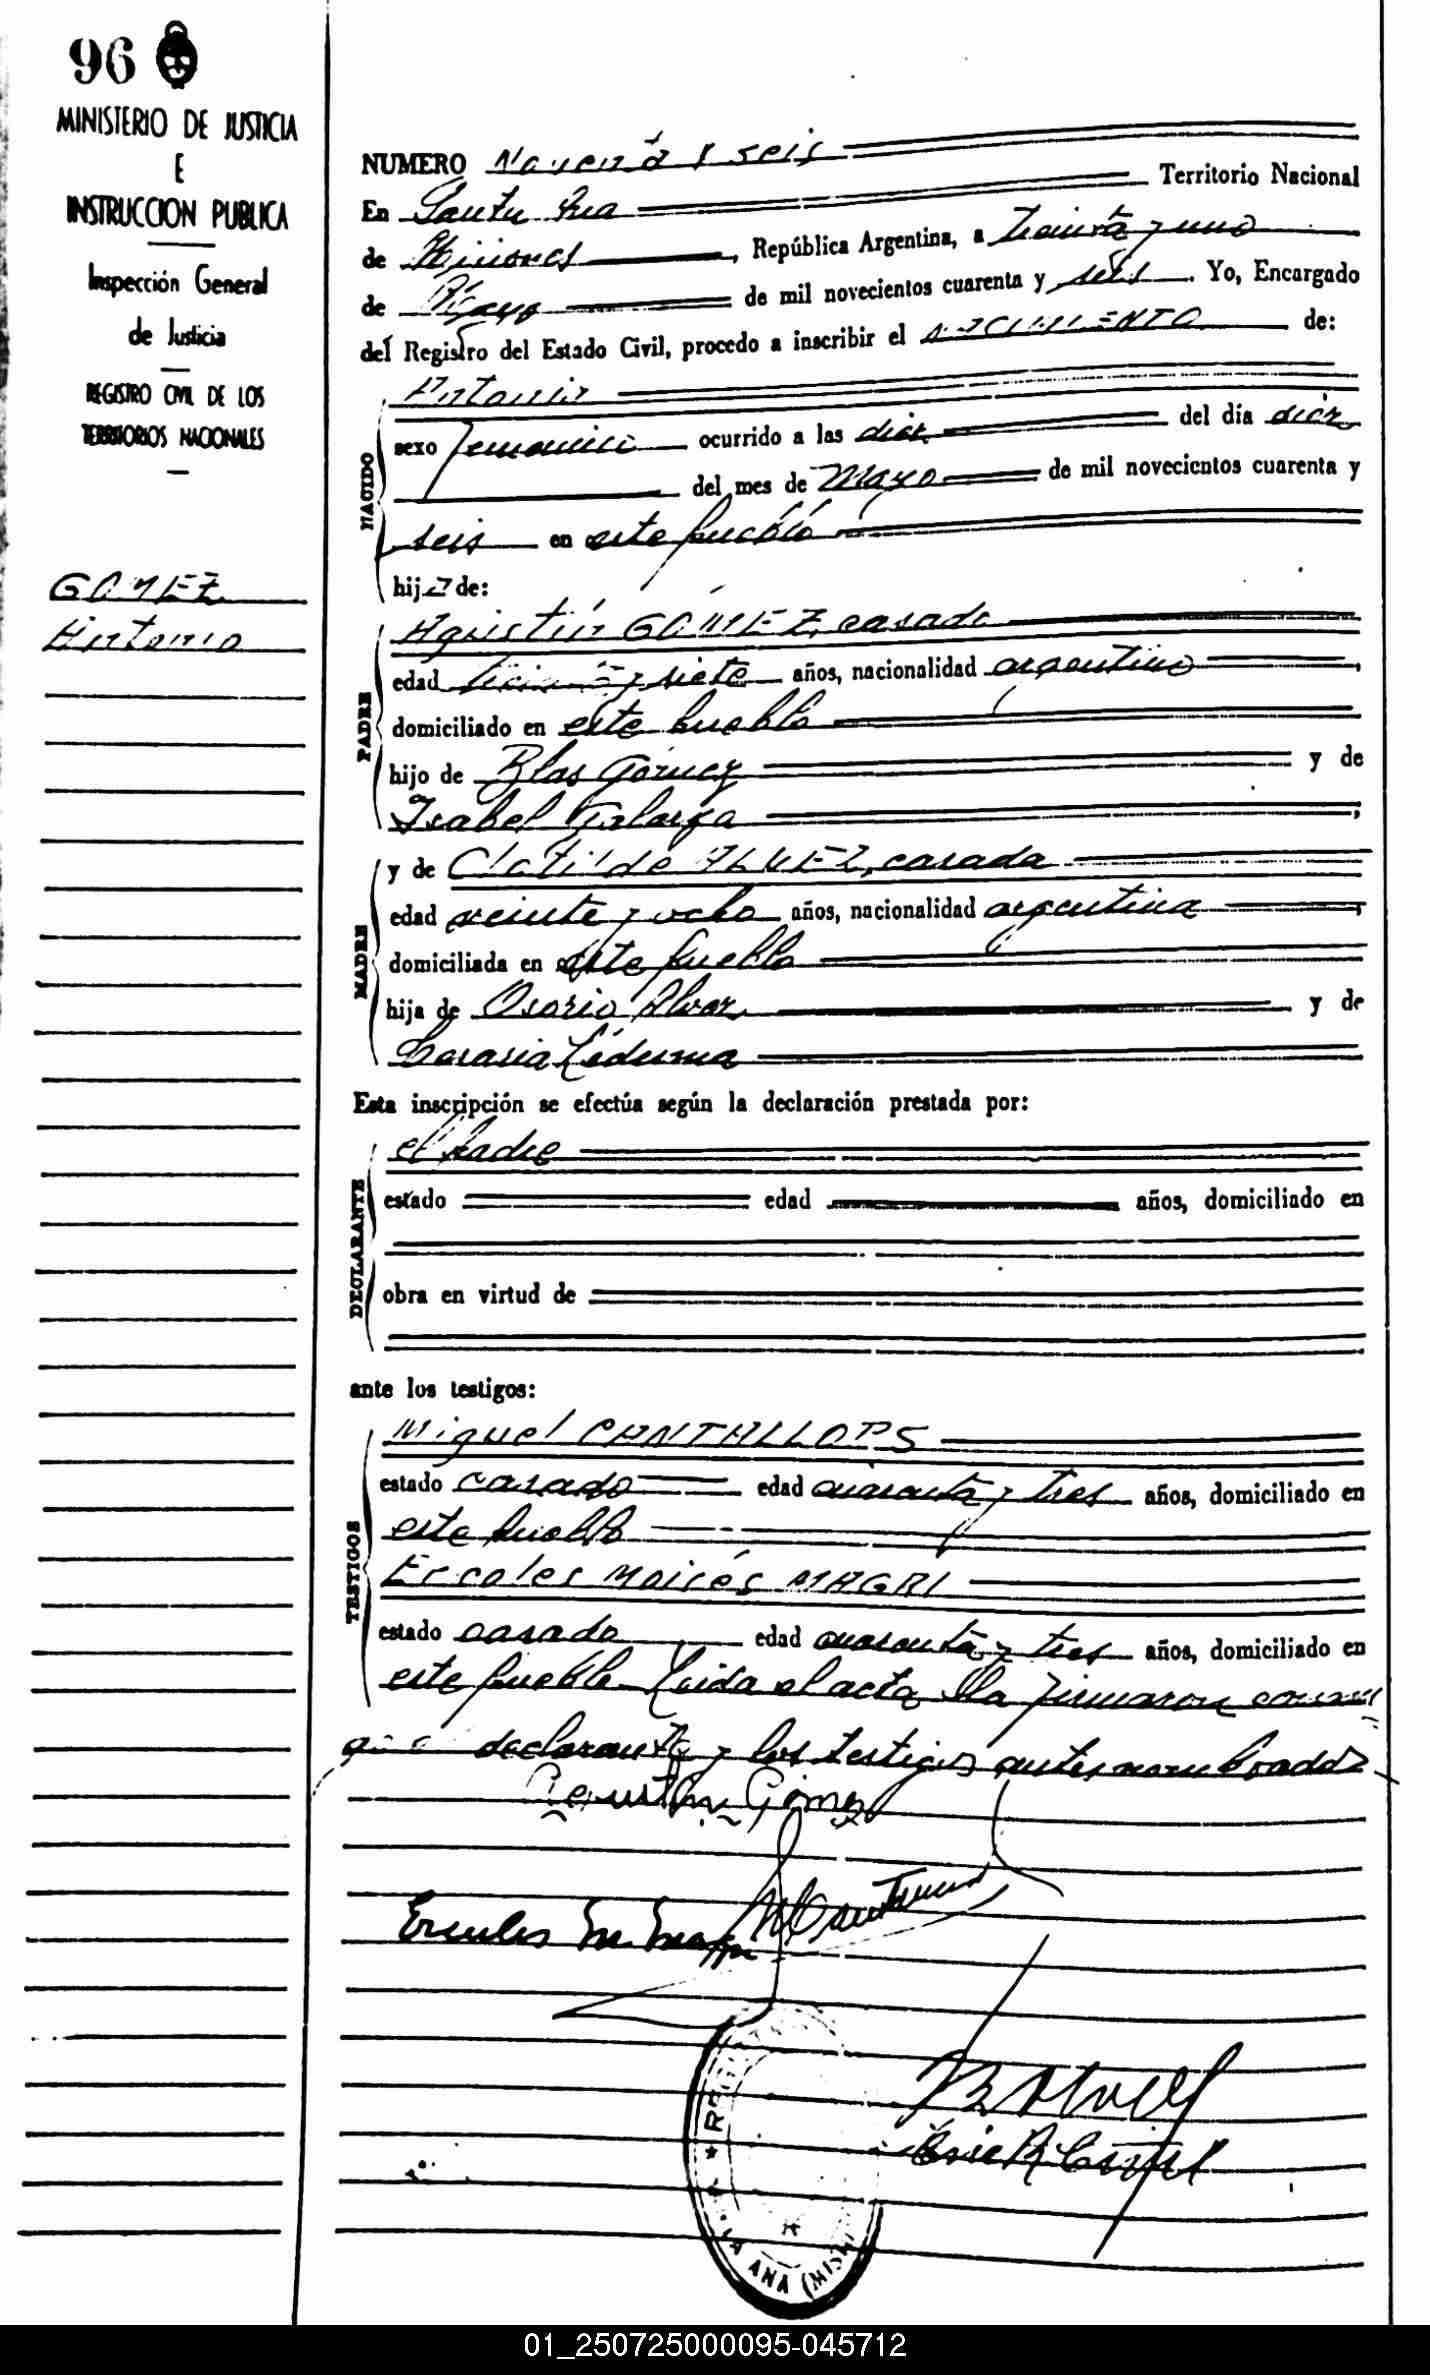 96
MINISTERIO DE JUSTICIA
E
INSTRUCCION PUBLICA
Inspección General
de Justicia
REGISTRO CIVIL DE LOS
TERRITORIOS NACIONALES
GOMEZ
Antonia
NUMERO Noventa y seis
En Santa Ana Territorio Nacional
de Misiones, República Argentina, a treinta y uno
de Mayo de mil novecientos cuarenta y seis. Yo, Encargado
del Registro del Estado Civil, procedo a inscribir el NACIMIENTO de:
NACIDO
Antonia
sexo femenino ocurrido a las diez del día diez
del mes de Mayo de mil novecientos cuarenta y
seis en este pueblo
hija de:
PADRE
Agustín GOMEZ, casado
edad treinta y siete años, nacionalidad argentino,
domiciliado en este pueblo
hijo de Blas Gómez y de
Isabel Galarza,
MADRE
y de Clotilde ALVEZ, casada
edad veinte y ocho años, nacionalidad argentina,
domiciliada en este pueblo
hija de Osorio Alvez y de
Ledesma
Esta inscripción se efectúa según la declaración prestada por:
DECLARANTE
el padre
estado edad años, domiciliado en
obra en virtud de
ante los testigos:
TESTIGOS
Miguel CANTALLOPS
estado casado edad cuarenta y tres años, domiciliado en
este pueblo
Ercoles Moisés MAGRI
estado casado edad cuarenta y tres años, domiciliado en
este pueblo. Leida el acta, la firmaron conmi
go el declarante y los testigos antes nombrados
Agustín Gómez
Ercules M. Magri
ANA (MIS
01_250725000095-045712